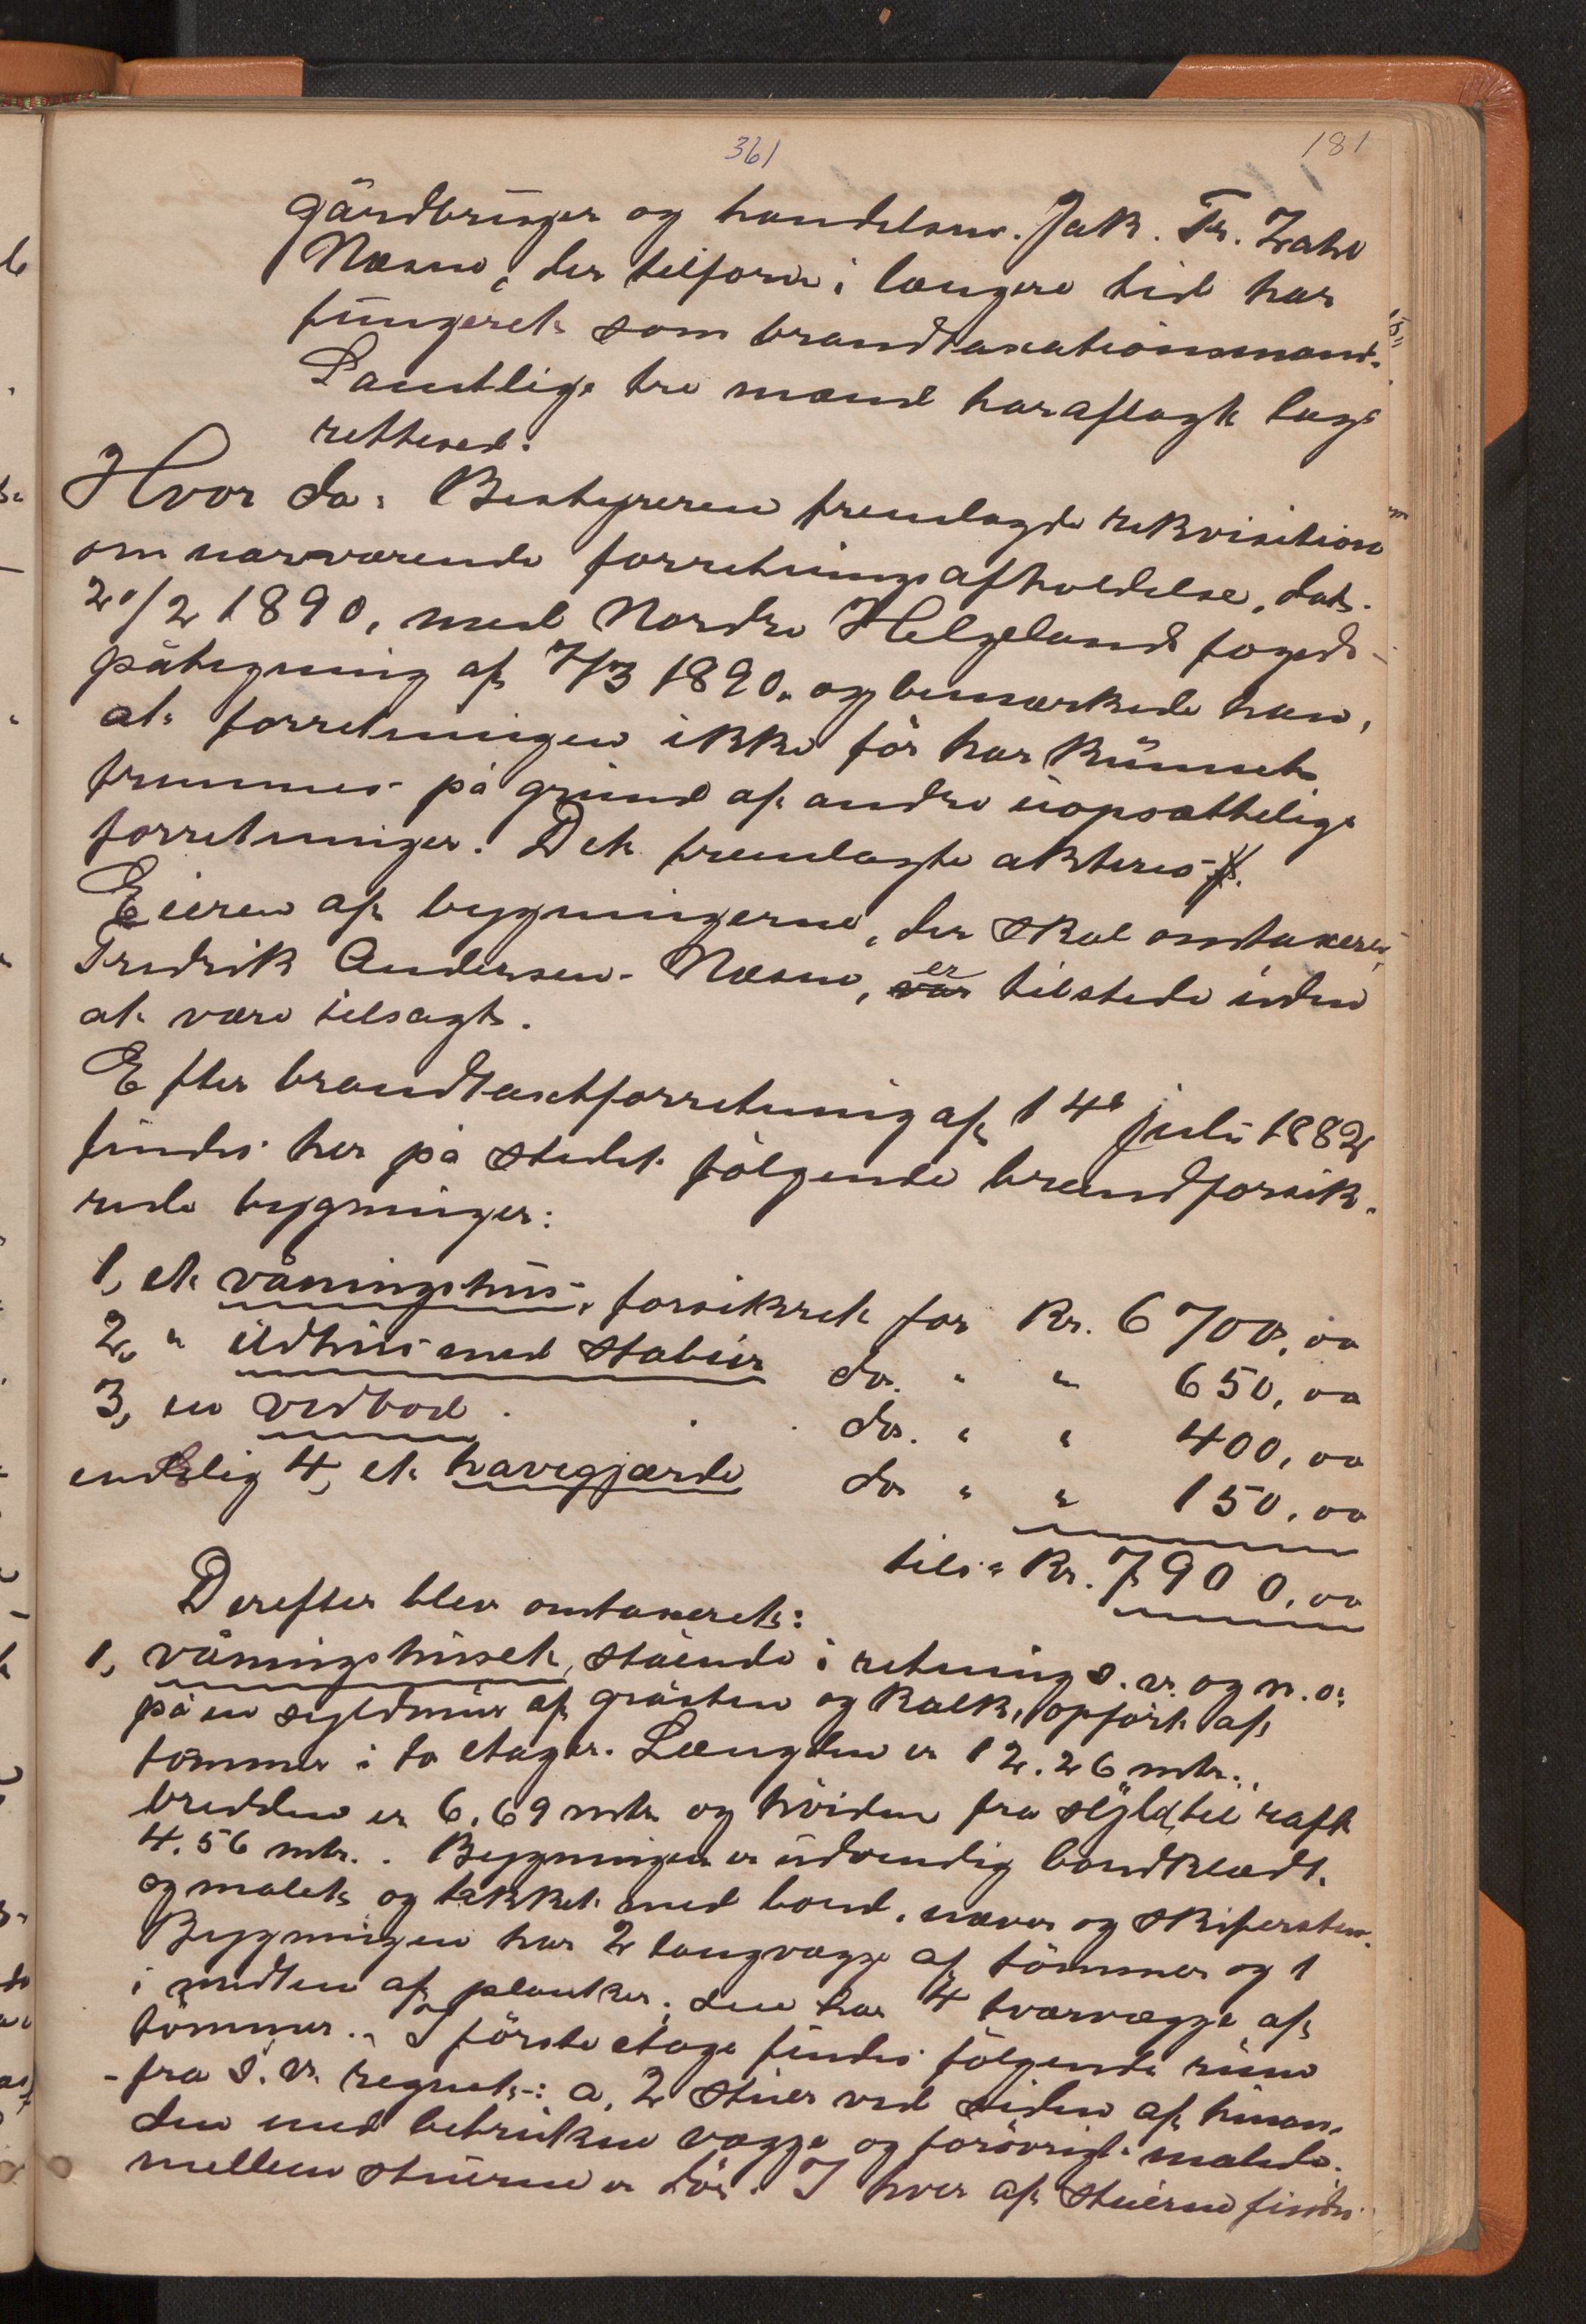 361
181
gårdbruger og handelsm. Jak. Fr. Zahl
Næsne, der tilforn i længere tid har
fungeret som brandtaxationsmand.
Samtlige tre mænd har aflagt lag-
rettesed.
Hvor da: Bestyreren fremlagde rekvisition
om nærværende forretnings afholdelse, dat.
20/2 1890, med Nordre Helgelands fogeds
påtegning af 7/3 1890, og bemærkede han,
at forretningen ikke før har kunnet
fremmes på grund af andre uopsættelige
forretninger. Det fremlagte akteres
Eieren af bygningerne, der skal omtaxeres,
Fredrik Andersen-Næsne, var er tilstede uden
at være tilsagt.
Efter brandtaxtforretning af 14de juli 1882
findes her på stedet følgende brandforsik-
rede bygninger:
1, et våningshus, forsikret for Kr. 6700,00
2, " ildhus med stabur do. " " 650,00
3, en vedbod . . . do. " " 400,00
endelig 4, et havegjærde do " " 150,00
tils. Kr. 7900,00
Derefter blev omtaxeret:
1, våningshuset, stående i retning s.v. og n.o.
på en syldmur af gråsten og kalk, opført af
tømmer i to etager. Længden er 12.26 mtr.,
bredden er 6,69 mtr og høiden fra syld til raft
4.56 mtr.. Bygningen er udvendig bordklædt
og malet og tækket med bord, næver og skifersten.
Bygningen har 2 langvægge af tømmer og 1
i midten af planker; den har 4 tværvægge af
tømmer. I første etage findes følgende rum
- fra s.v. regnet -: a, 2 stuer ved siden af hinan-
den med betrukne vægge og forøvrigt malede;
mellem stuerne er dør. I hver af stuerne findes